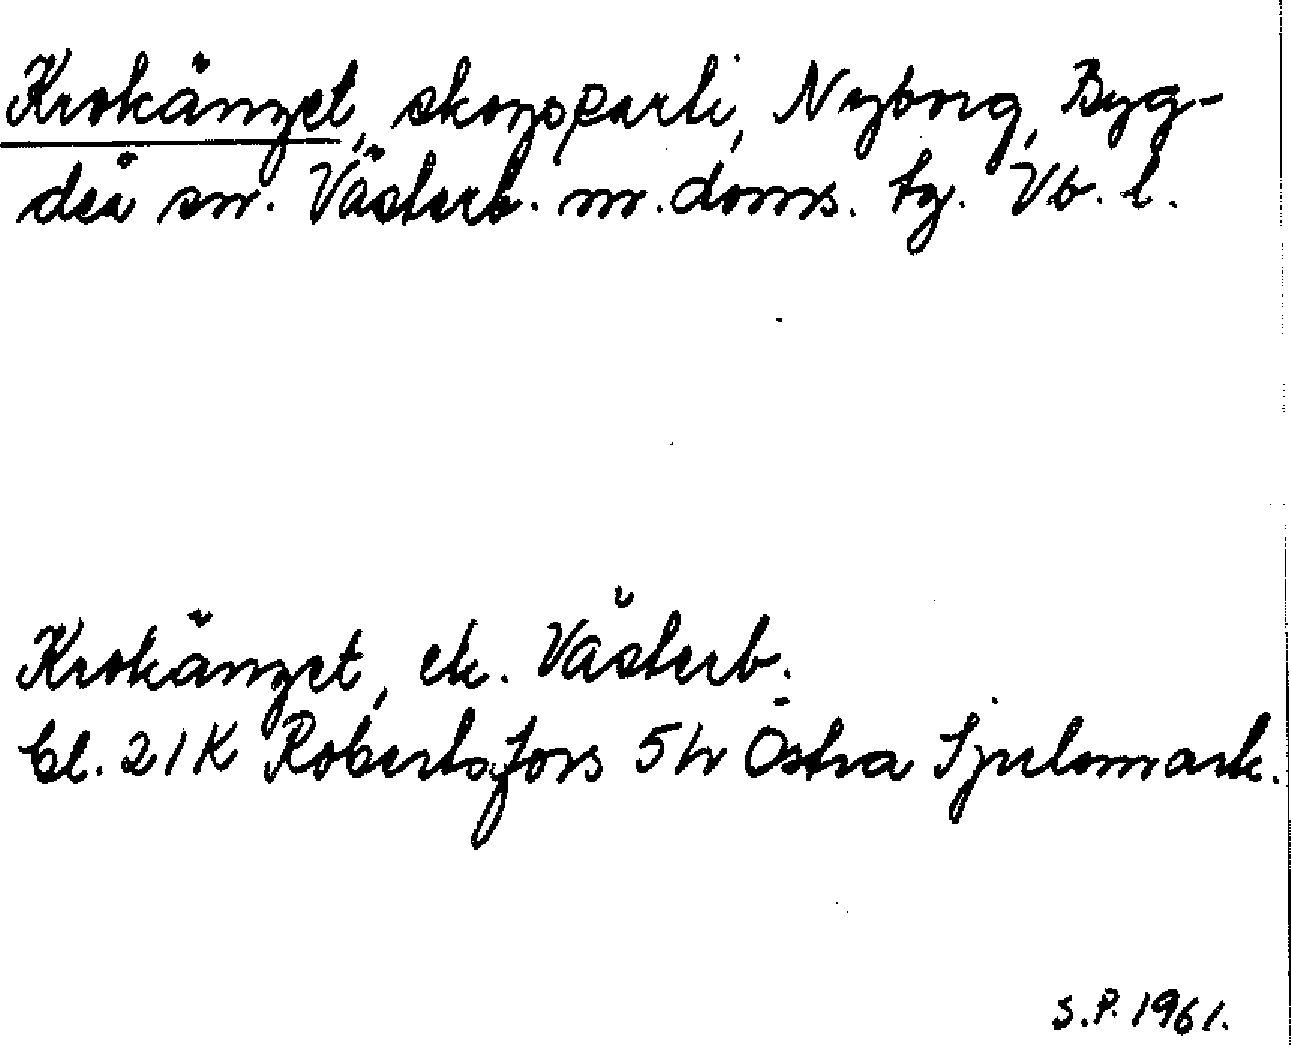 Krokänget, skogsparti, Nyborg, Byg-
deå sn. Västerb. n. doms. tg. Vb. l.
Krokänget, ek. Västerb.
bl. 21K Robertsfors 5h Östra Sjulsmark.
S.P. 1961.